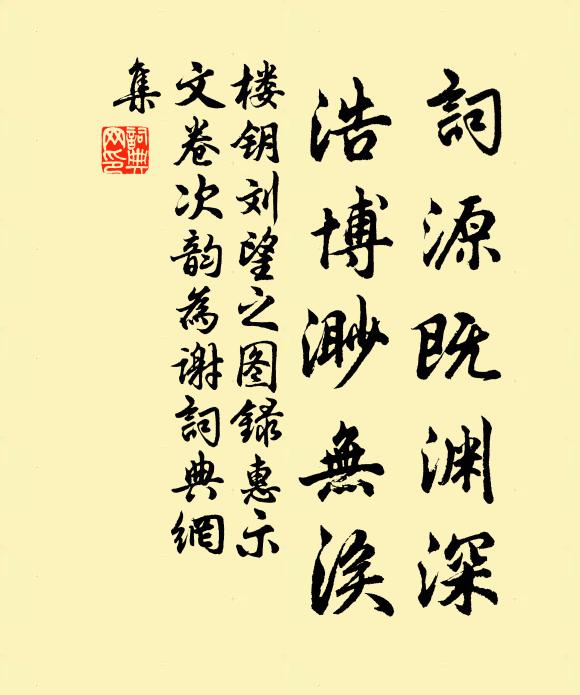 詞源既渊深
浩博渺無涘
楼钥刘望之图録惠示
文卷次韵為谢詞典網
集
詞典
网印